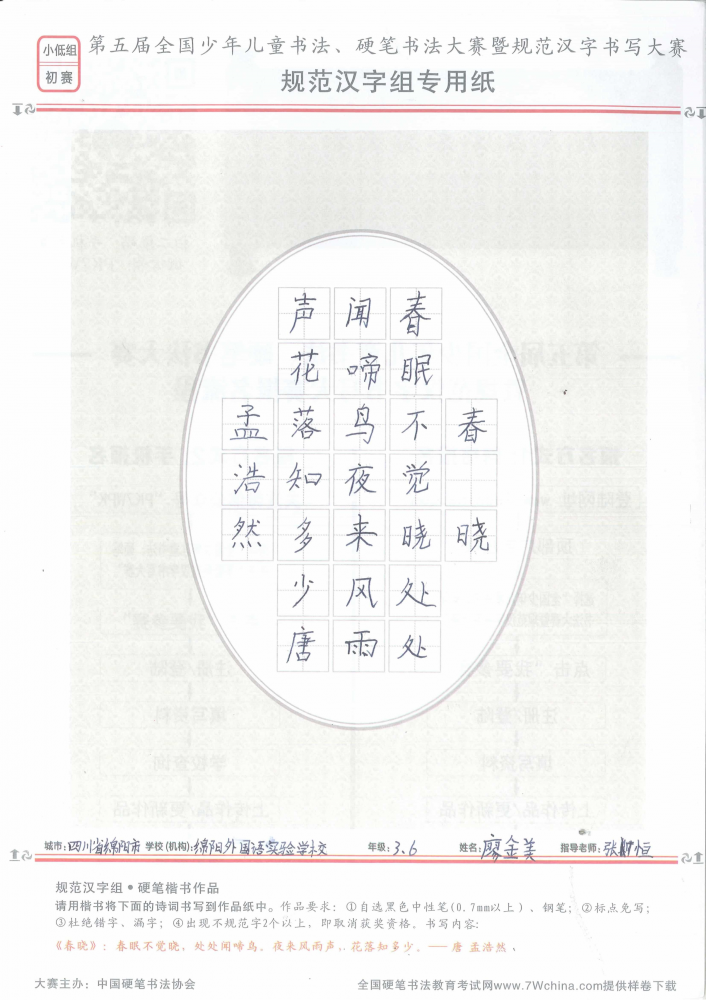 小低组
初赛
第五届全国少年儿童书法、硬笔书法大赛暨规范汉字书写大赛
规范汉字组专用纸
春晓
春眠不觉晓处处
闻啼鸟夜来风雨
声花落知多少唐
孟浩然
城市:四川省绵阳市 学校(机构):绵阳外国语实验学校 年级:3.6 姓名:廖金美 指导老师:张 恒
规范汉字组•硬笔楷书作品
请用楷书将下面的诗词书写到作品纸中。作品要求:①自选黑色中性笔(0.7mm以上)、钢笔;②标点免写;
③杜绝错字、漏字;④出现不规范字2个以上,即取消获奖资格。书写内容:
《春晓》:春眠不觉晓,处处闻啼鸟。夜来风雨声,花落知多少。——唐 孟浩然
大赛主办:中国硬笔书法协会
全国硬笔书法教育考试网www.7Wchina.com提供样卷下载